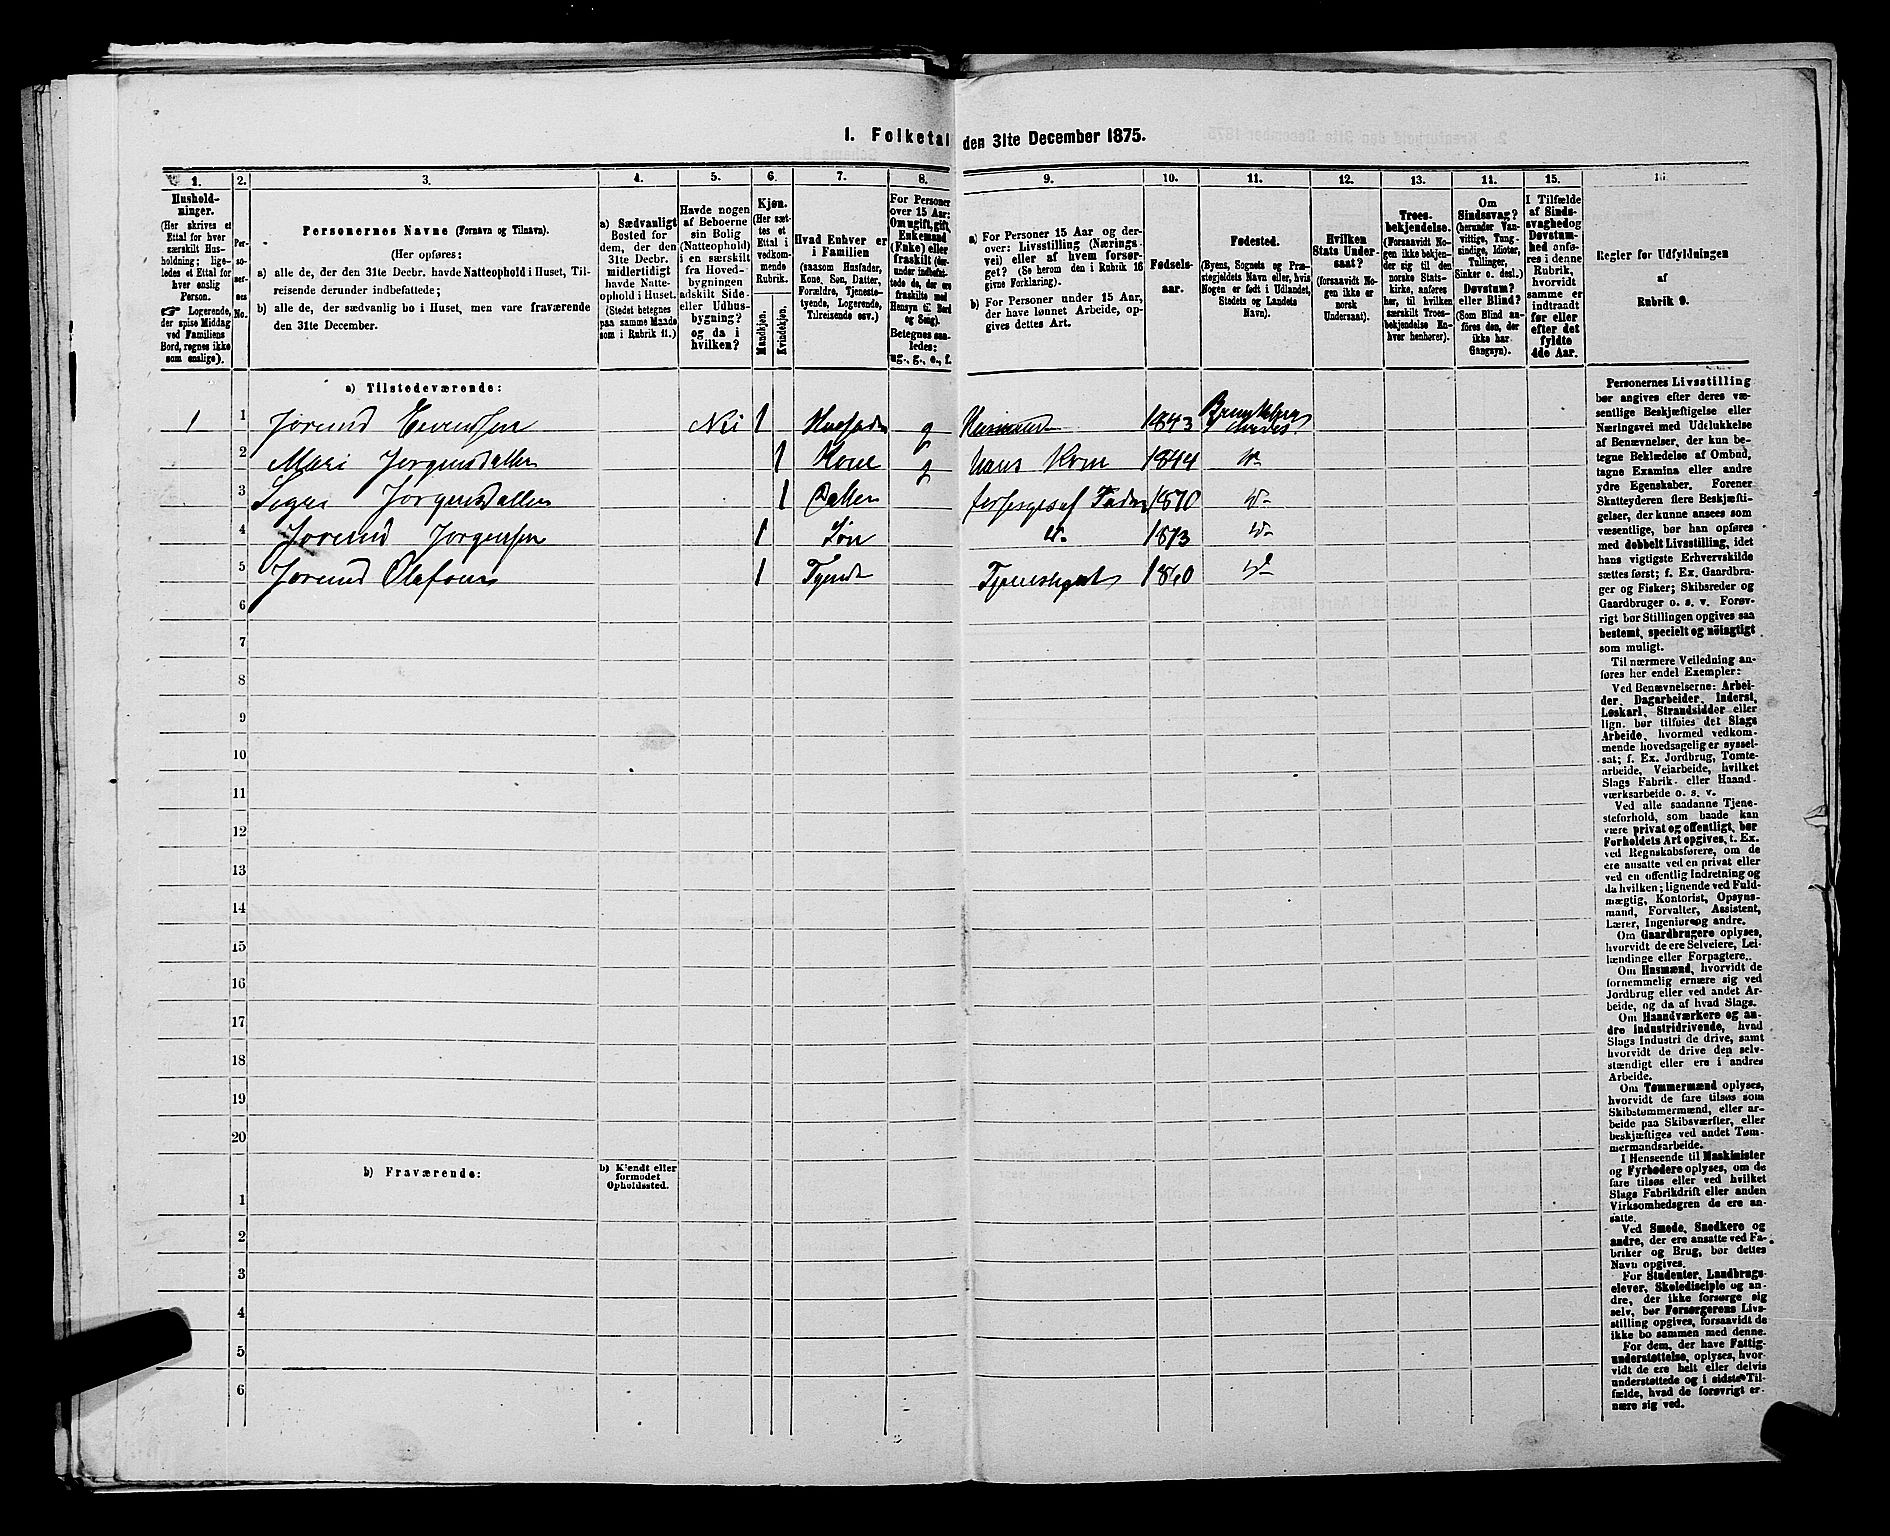 1. Folketal den 31te December 1875.
1. 2. 3. 4. 5. 6. 7. 8. 9. 10. 11. 12. 13. 14. 15. 16
Hushold-
ninger.
(Her skrives et
Ettal for hver
særskilt Hus-
holdning; lige-
ledes et Ettal for
hver enslig
Person.
☞ Logerende,
der spise Middag
ved Familiens
Bord, regnes ikke
som enslige).
Per-
so-
ner-
nes
No.
Personernes Navne (Fornavn og Tilnavn).
(Her opføres:
a) alle de, der den 31te Decbr. havde Natteophold i Huset, Til-
reisende derunder indbefattede;
b) alle de, der sædvanlig bo i Huset, men vare fraværende
den 31te December.
a) Sædvanligt
Bosted for
dem, der den
31te Decbr.
midlertidigt
havde Natte-
ophold i Huset.
(Stedet betegnes
paa samme Maade
som i Rubrik 11.)
Havde nogen
af Beboerne
sin Bolig
(Natteophold)
i en særskilt
fra Hoved-
bygningen
adskilt Side-
eller Udhus-
bygning?
og da i
hvilken?
Kjøn.
(Her sæt-
tes et
Ettal i
vedkom-
mende
Rubrik.
Mandkjøn.
Kvindekjøn.
Hvad Enhver er
i Familien
(saasom Husfader,
Kone, Søn, Datter,
Forældre, Tjeneste-
tyende, Logerende,
Tilreisende osv.)
For Personer
over 15 Aar:
Om ugift, gift,
Enkemand
(Enke) eller
fraskilt (der-
under indbefat-
tede de, der ere
fraskilte med
Hensyn til Bord
og Seng).
Betegnes saa-
ledes:
ug., g., e., f.
a) For Personer 15 Aar og der-
over: Livsstilling (Nærings-
vei) eller af hvem forsør-
get? (Se herom den i Rubrik 16
givne Forklaring).
b) For Personer under 15 Aar,
der have lønnet Arbeide, op-
gives dettes Art.
Fødsels-
aar.
Fødested.
(Byens, Sognets og Præ-
stegjeldets Navn eller, hvis
Nogen er født i Udlandet,
Stedets og Landets
Navn).
Hvilken
Stats Under-
saat?
(forsaavidt No-
gen ikke er
norsk
Undersaat).
Troes-
bekjendelse.
(Forsaavidt No-
gen ikke bekjen-
der sig til den
norske Stats-
kirke, anføres
her, til hvilken
særskilt Troes-
bekjendelse En-
hver henhører).
Om
Sindssvag?
(herunder Van-
vittige, Tung-
sindige, Idioter,
Tullinger,
Sinker o. desl.)
Døvstum?
eller Blind?
(Som Blind an-
føres den, der
ikke har
Gangsyn).
I Tilfælde
af Sinds-
svaghed og
Døvstum-
hed anfø-
res i denne
Rubrik,
hvorvidt
samme er
indtraadt
før eller
efter det
fyldte
4de Aar.
Regler for Udfyldningen
af
Rubrik 9.
a) Tilstedeværende:
1 1 Jørund Evensen Nei 1 Husfader g Husmand 1843 Brunkeberg
2 Mari Jørgensdatter 1 Kone g hans Kone 1844 do
3 Signe Jørgensdatter 1 Datter forsørges af Fader 1870 do
4 Jørund Jørgensen 1 Søn do 1873 do
5 Jørund Olafsen 1 Tyende 1860 do
6
7
8
9
10
11
12
13
14
15
16
17
18
19
20
b) Fraværende:
b) Kjendt eller
formodet
Opholdssted.
1
2
3
4
5
6
Personernes Livsstilling
bør angives efter deres væ-
sentlige Beskjæftigelse eller
Næringsvei med Udelukkelse
af Benævnelser, der kun be-
tegne Beklædelse af Ombud,
tagne Examina eller andre
ydre Egenskaber. Forener
Skatteyderen flere Beskjæfti-
gelser, der kunne ansees som
væsentlige, bør han opføres
med dobbelt Livsstilling, idet
hans vigtigste Erhvervskilde
sættes først; f. Ex. Gaardbru-
ger og Fisker; Skibsreder og
Gaardbruger o. s. v. Forøv-
rigt bør Stillingen opgives saa
bestemt, specielt og nøiagtigt
som muligt.
Til nærmere Veiledning an-
føres her endel Exempler:
Ved Benævnelserne: Arbei-
der, Dagarbeider, Inderst,
Løskarl, Strandsidder eller
lign. bør tilføies det Slags
Arbeide, hvormed vedkom-
mende hovedsagelig er syssel-
sat; f. Ex. Jordbrug, Tomte-
arbeide, Veiarbeide, hvilket
Slags Fabrik- eller Haand-
værksarbeide o. s. v.
Ved alle saadanne Tjene-
steforhold, som baade kan
være privat og offentligt, bør
Forholdets Art opgives, t. Ex.
ved Regnskabsførere, om de
ere ansatte ved en privat eller
ved en offentlig Indretning og
da hvilken; lignende ved Fuld-
mægtig, Kontorist, Opsyns-
mand, Forvalter, Assistent,
Lærer, Ingeniør og andre.
Om Gaardbrugere oplyses,
hvorvidt de ere Selveiere, Lei-
lændinge eller Forpagtere.
Om Husmænd, hvorvidt de
fornemmelig ernære sig ved
Jordbrug eller ved andet Ar-
beide, og da af hvad Slags.
Om Haandværkere og an-
dre Industridrivende, hvad
Slags Industri de drive, samt
hvorvidt de drive den selv-
stændigt eller ere i andres
Arbeide.
Om Tømmermænd oplyses,
hvorvidt de fare tilsøs som
Skibstømmermænd, eller ar-
beide paa Skibsværfter, eller
beskjæftiges ved andet Tøm-
mermandsarbeide.
I Henseende til Maskinister
og Fyrbødere oplyses, om de
fare tilsøs eller ved hvilket
Slags Fabrikdrift eller anden
Virksomhedsgren de ere an-
satte.
Ved Smede, Snedkere og
andre, der ere ansatte ved Fa-
briker og Brug, bør dettes
Navn opgives.
For Studenter, Landbrugs-
elever, Skoledisciple og an-
dre, der ikke forsørge sig
selv, bør Forsørgerens Livs-
stilling opgives, forsaavidt de
ikke bo sammen med denne.
For dem, der have Fattig-
understøttelse, oplyses, hvor-
vidt de ere helt eller delvis
understøttede og i sidste Til-
fælde, hvad de forøvrigt er-
nære sig ved.